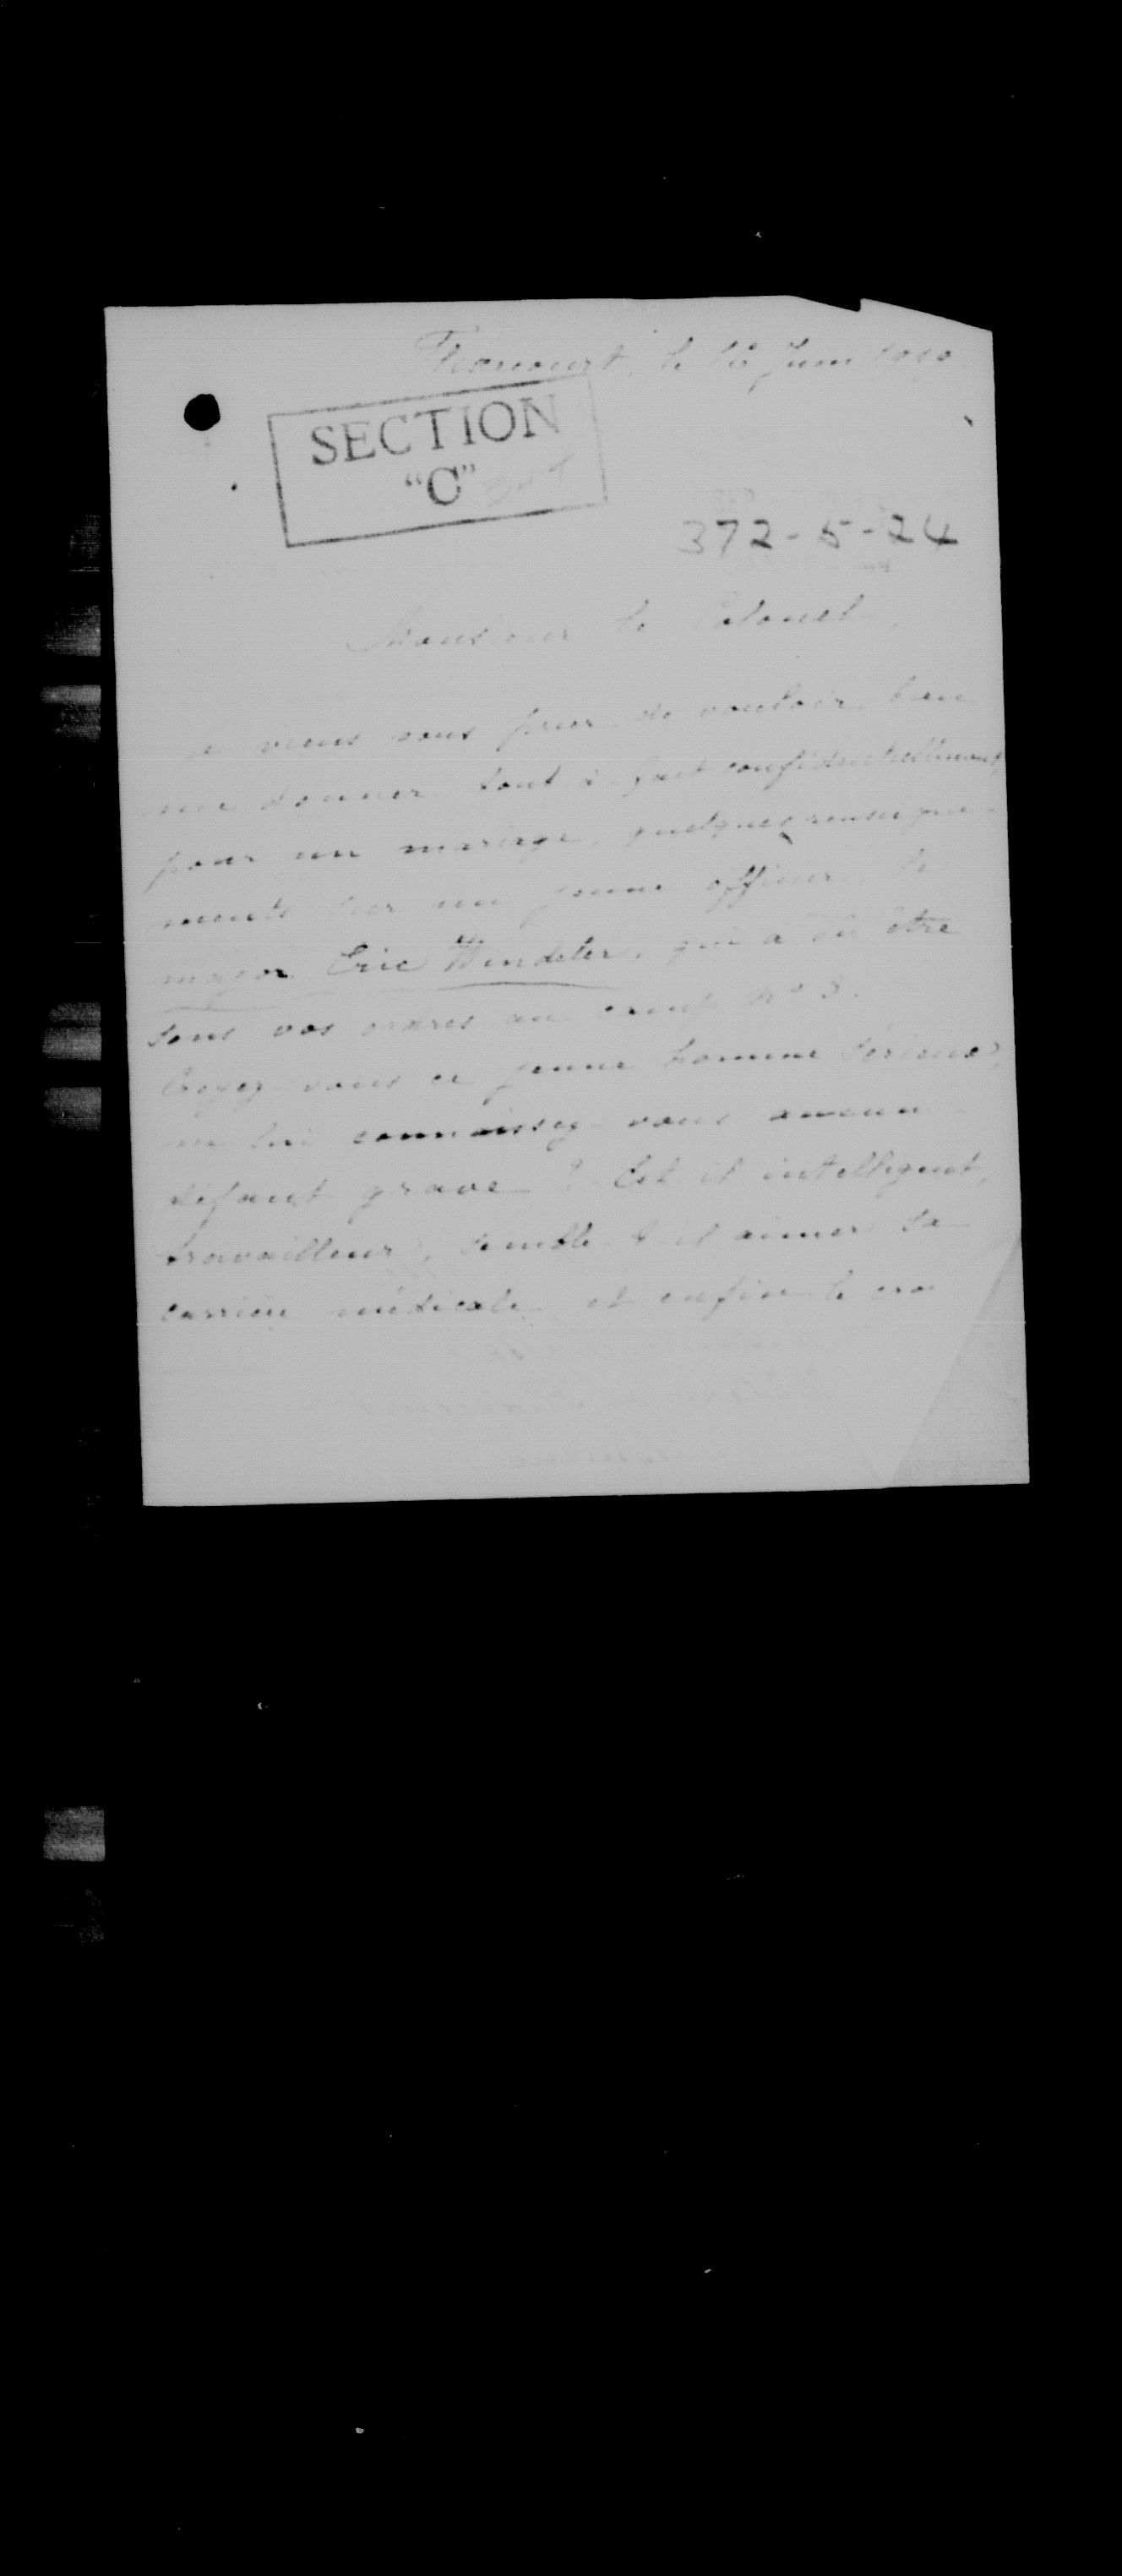 le 16 Juin
SECTION
"C"
372-5-24
Monsieur le Colonel,
viens vous prier de vouloir bien
me donner tout à fait confidentiellement,
pour un mariage, quelques renseigne-
ments sur un jeune officier, le
major Eric Windeler, qui a dû être
sous vos ordres au camp No 3.
Croyez-vous ce jeune homme sérieux,
ne lui connaissez-vous aucun
défaut grave ? Est il intelligent,
travailleur, semble-t-il aimer sa
carrière médicale et enfin le